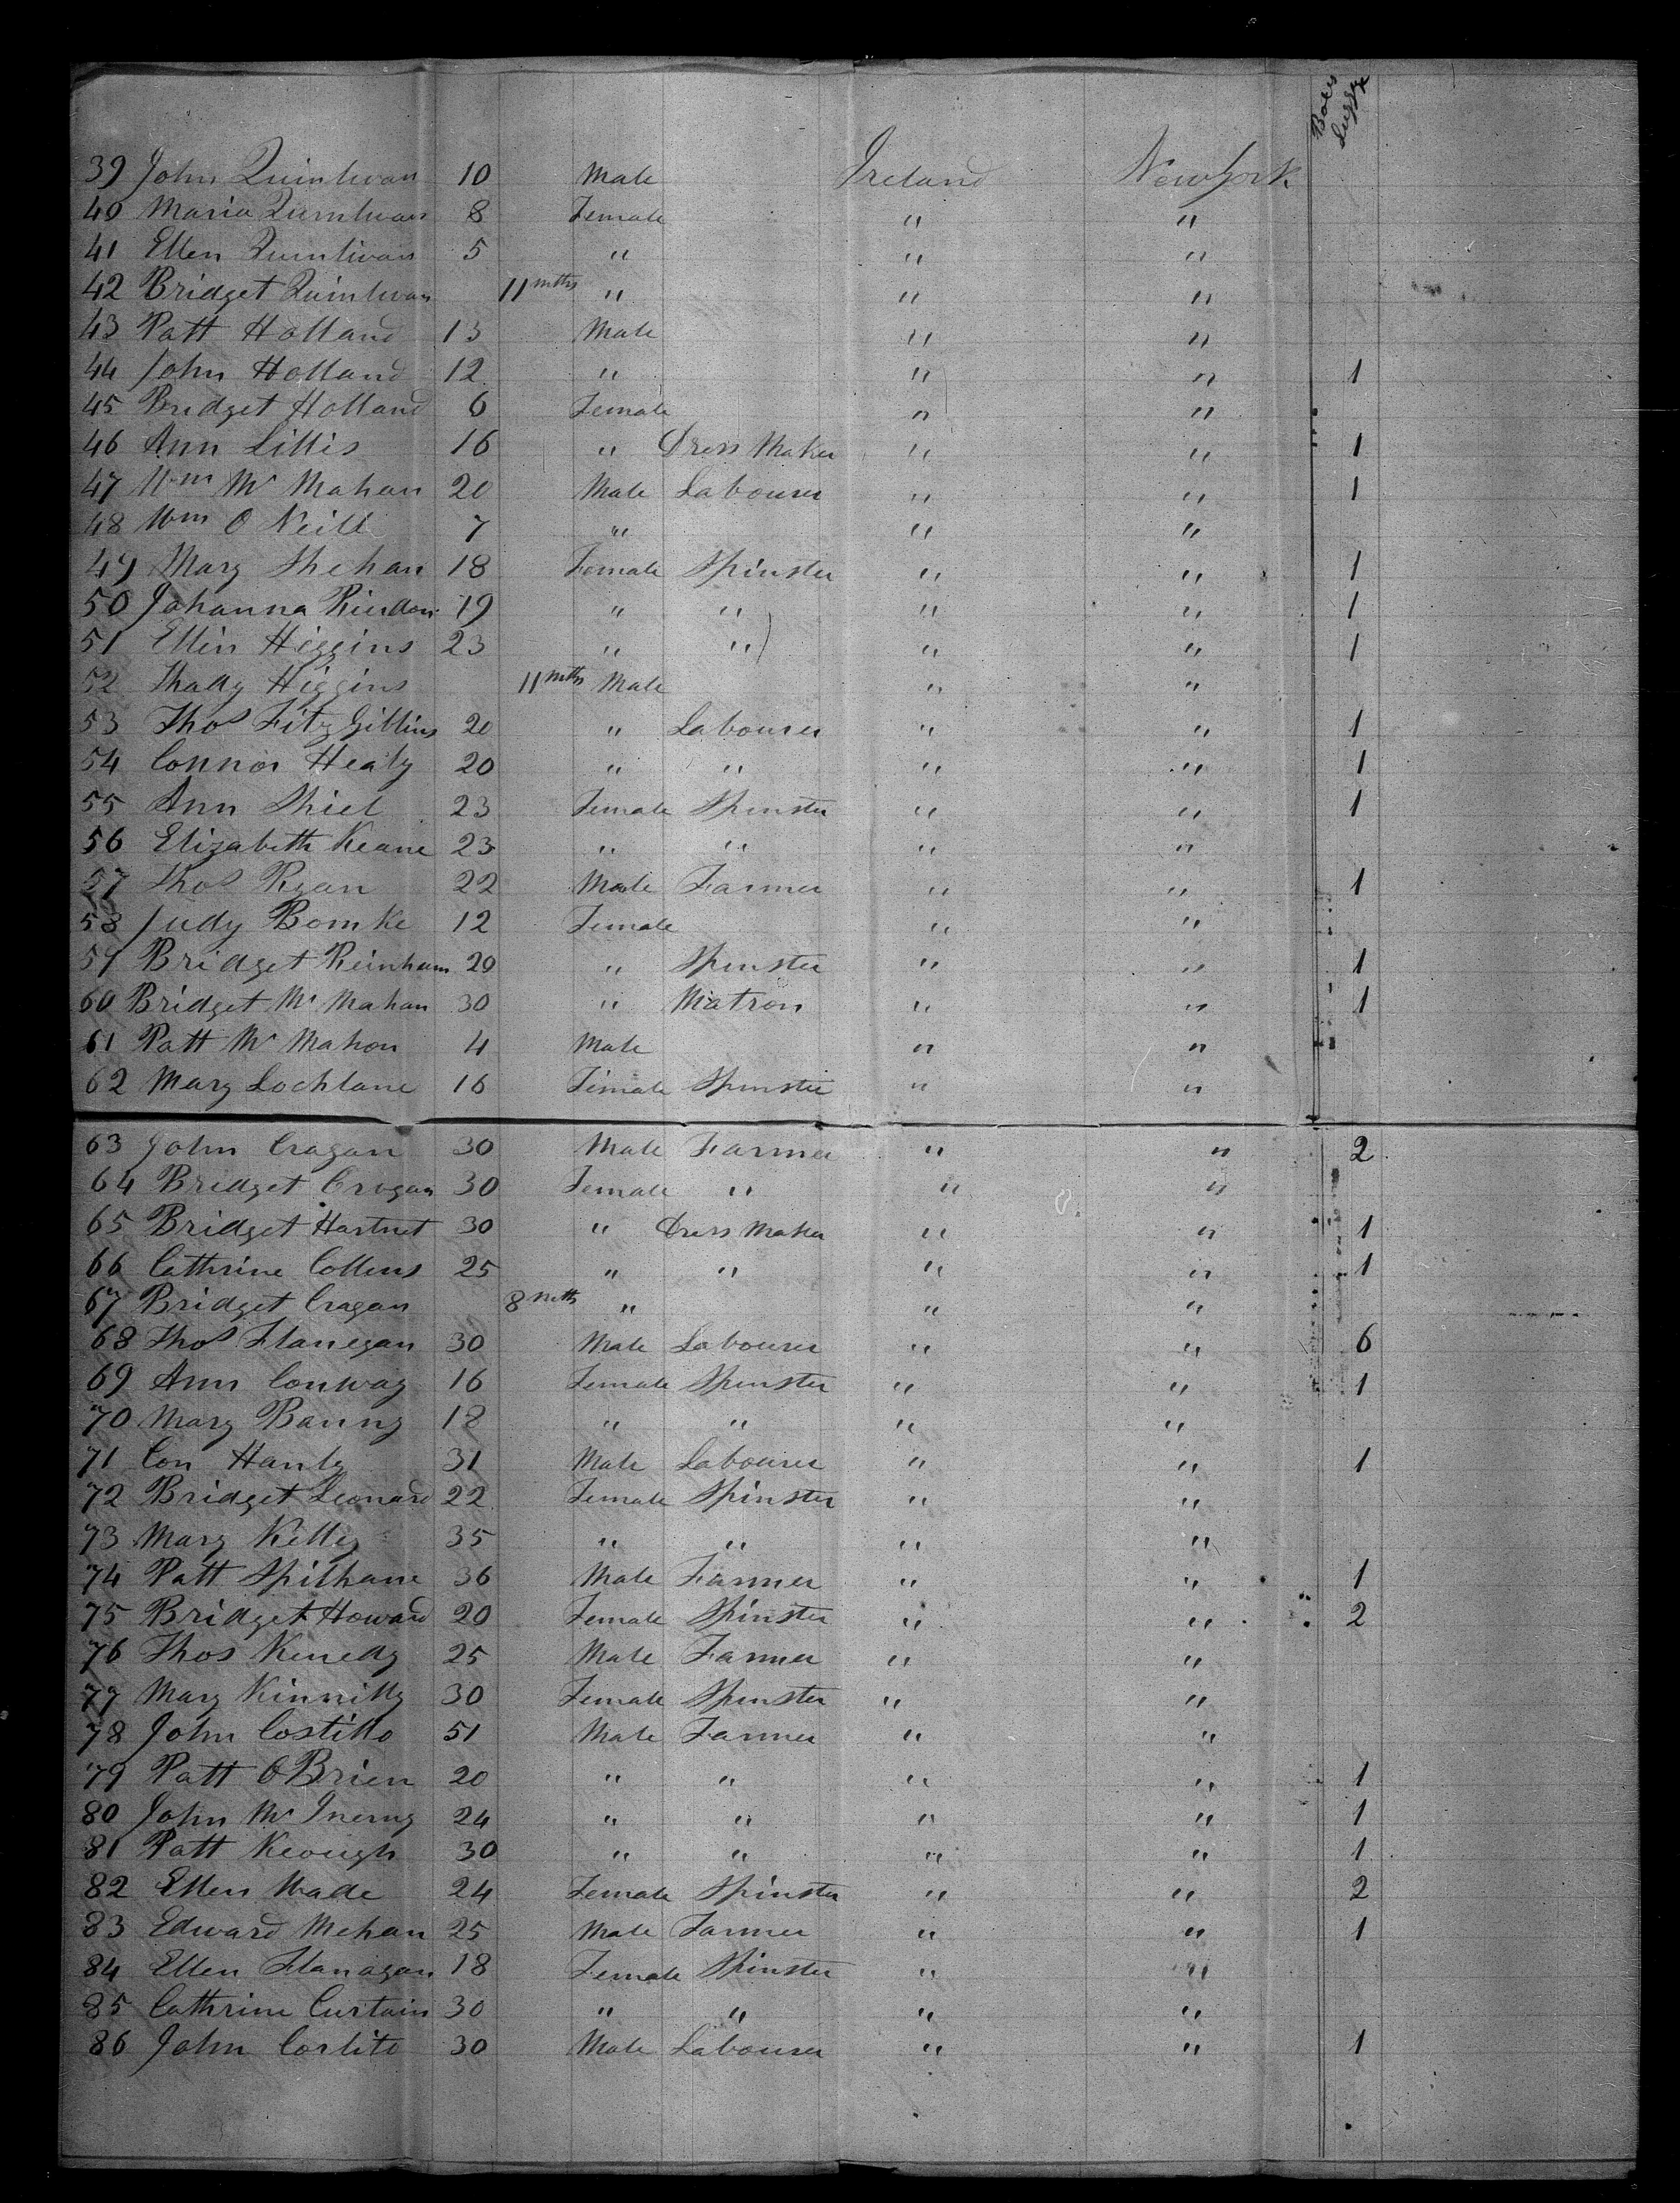 Boxes Luggage
39 John Quinlivan 10 Male Ireland New York
40 Maria Quinlivan 8 Female " "
41 Ellen Quinlivan 5 " " "
42 Bridget Quinlivan 11 mths " " "
43 Patt Holland 13 Male " "
44 John Holland 12 " " " 1
45 Bridget Holland 6 Female " "
46 Ann Lillis 16 " Dress Maker " " 1
47 Wm Mc Mahan 20 Male Labourer " " 1
48 Wm O Neill 7 " " "
49 Mary Shehan 18 Female Spinster " " 1
50 Johanna Riedon 19 " " " " 1
51 Ellin Higgins 23 " " " " 1
52 Thady Higgins 11 mths Male " "
53 Thos Fitz Gibbins 20 " Labourer " " 1
54 Connor Healy 20 " " " " 1
55 Ann Shiel 23 Female Spinster " " 1
56 Elizabeth Keane 23 " " " "
57 Thos Ryan 22 Male Farmer " " 1
58 Judy Bomke 12 Female " "
59 Bridget Reinham 20 " Spinster " " 1
60 Bridget Mc Mahan 30 " Matron " " 1
61 Patt Mc Mahon 4 Male " "
62 Mary Lochlane 16 Female Spinster " "
63 John Cragan 30 Male Farmer " " 2
64 Bridget Crogan 30 Female " " "
65 Bridget Hartnet 30 " Dress Maker " " 1
66 Cathrine Collens 25 " " " " 1
67 Bridget Cragan 8 mths " " "
68 Thos Flanegan 30 Male Labourer " " 6
69 Ann Conway 16 Female Spinster " " 1
70 Mary Banny 18 " " " "
71 Con Hanly 31 Male Labourer " " 1
72 Bridget Leonard 22 Female Spinster " "
73 Mary Kelley 35 " " " "
74 Patt Spilhane 36 Male Farmer " " 1
75 Bridget Howard 20 Female Spinster " " 2
76 Thos Kenedy 25 Male Farmer " "
77 Mary Kinnilly 30 Female Spinster " "
78 John Costillo 51 Male Farmer " "
79 Patt O Brien 20 " " " " 1
80 John Mc Inerny 24 " " " " 1
81 Patt Keough 30 " " " " 1
82 Ellen Wade 24 Female Spinster " " 2
83 Edward Mehan 25 Male Farmer " " 1
84 Ellen Flanagan 18 Female Spinster " "
85 Cathrine Curtain 30 " " " "
86 John Coslito 30 Male Labourer " " 1